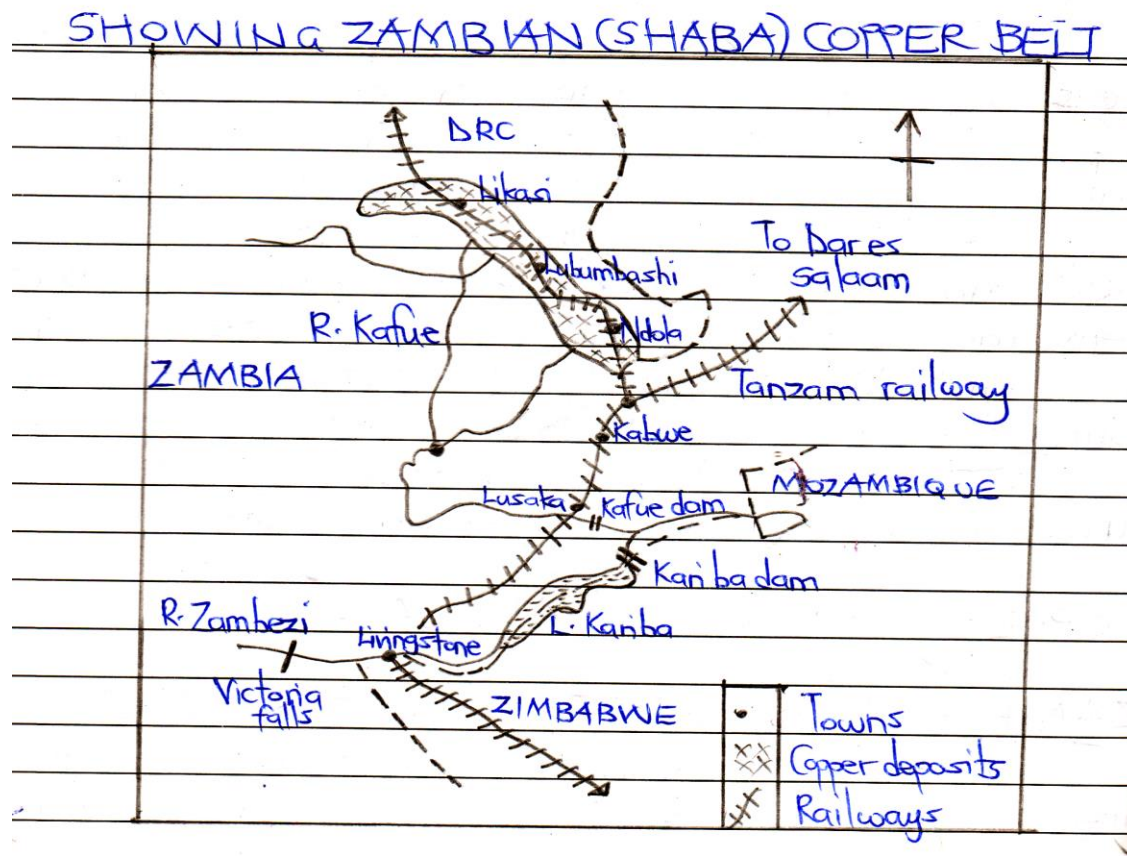 SHOWING ZAMBIAN (SHABA) COPPER BELT
DRC
Likasi
To Dar es
Salaam
Lubumbashi
R. Kafue
Ndola
ZAMBIA
Tanzam railway
Kabwe
MOZAMBIQUE
Lusaka
Kafue dam
Kariba dam
R. Zambezi
L. Kariba
Livingstone
Victoria
falls
ZIMBABWE
Towns
Copper deposits
Railways